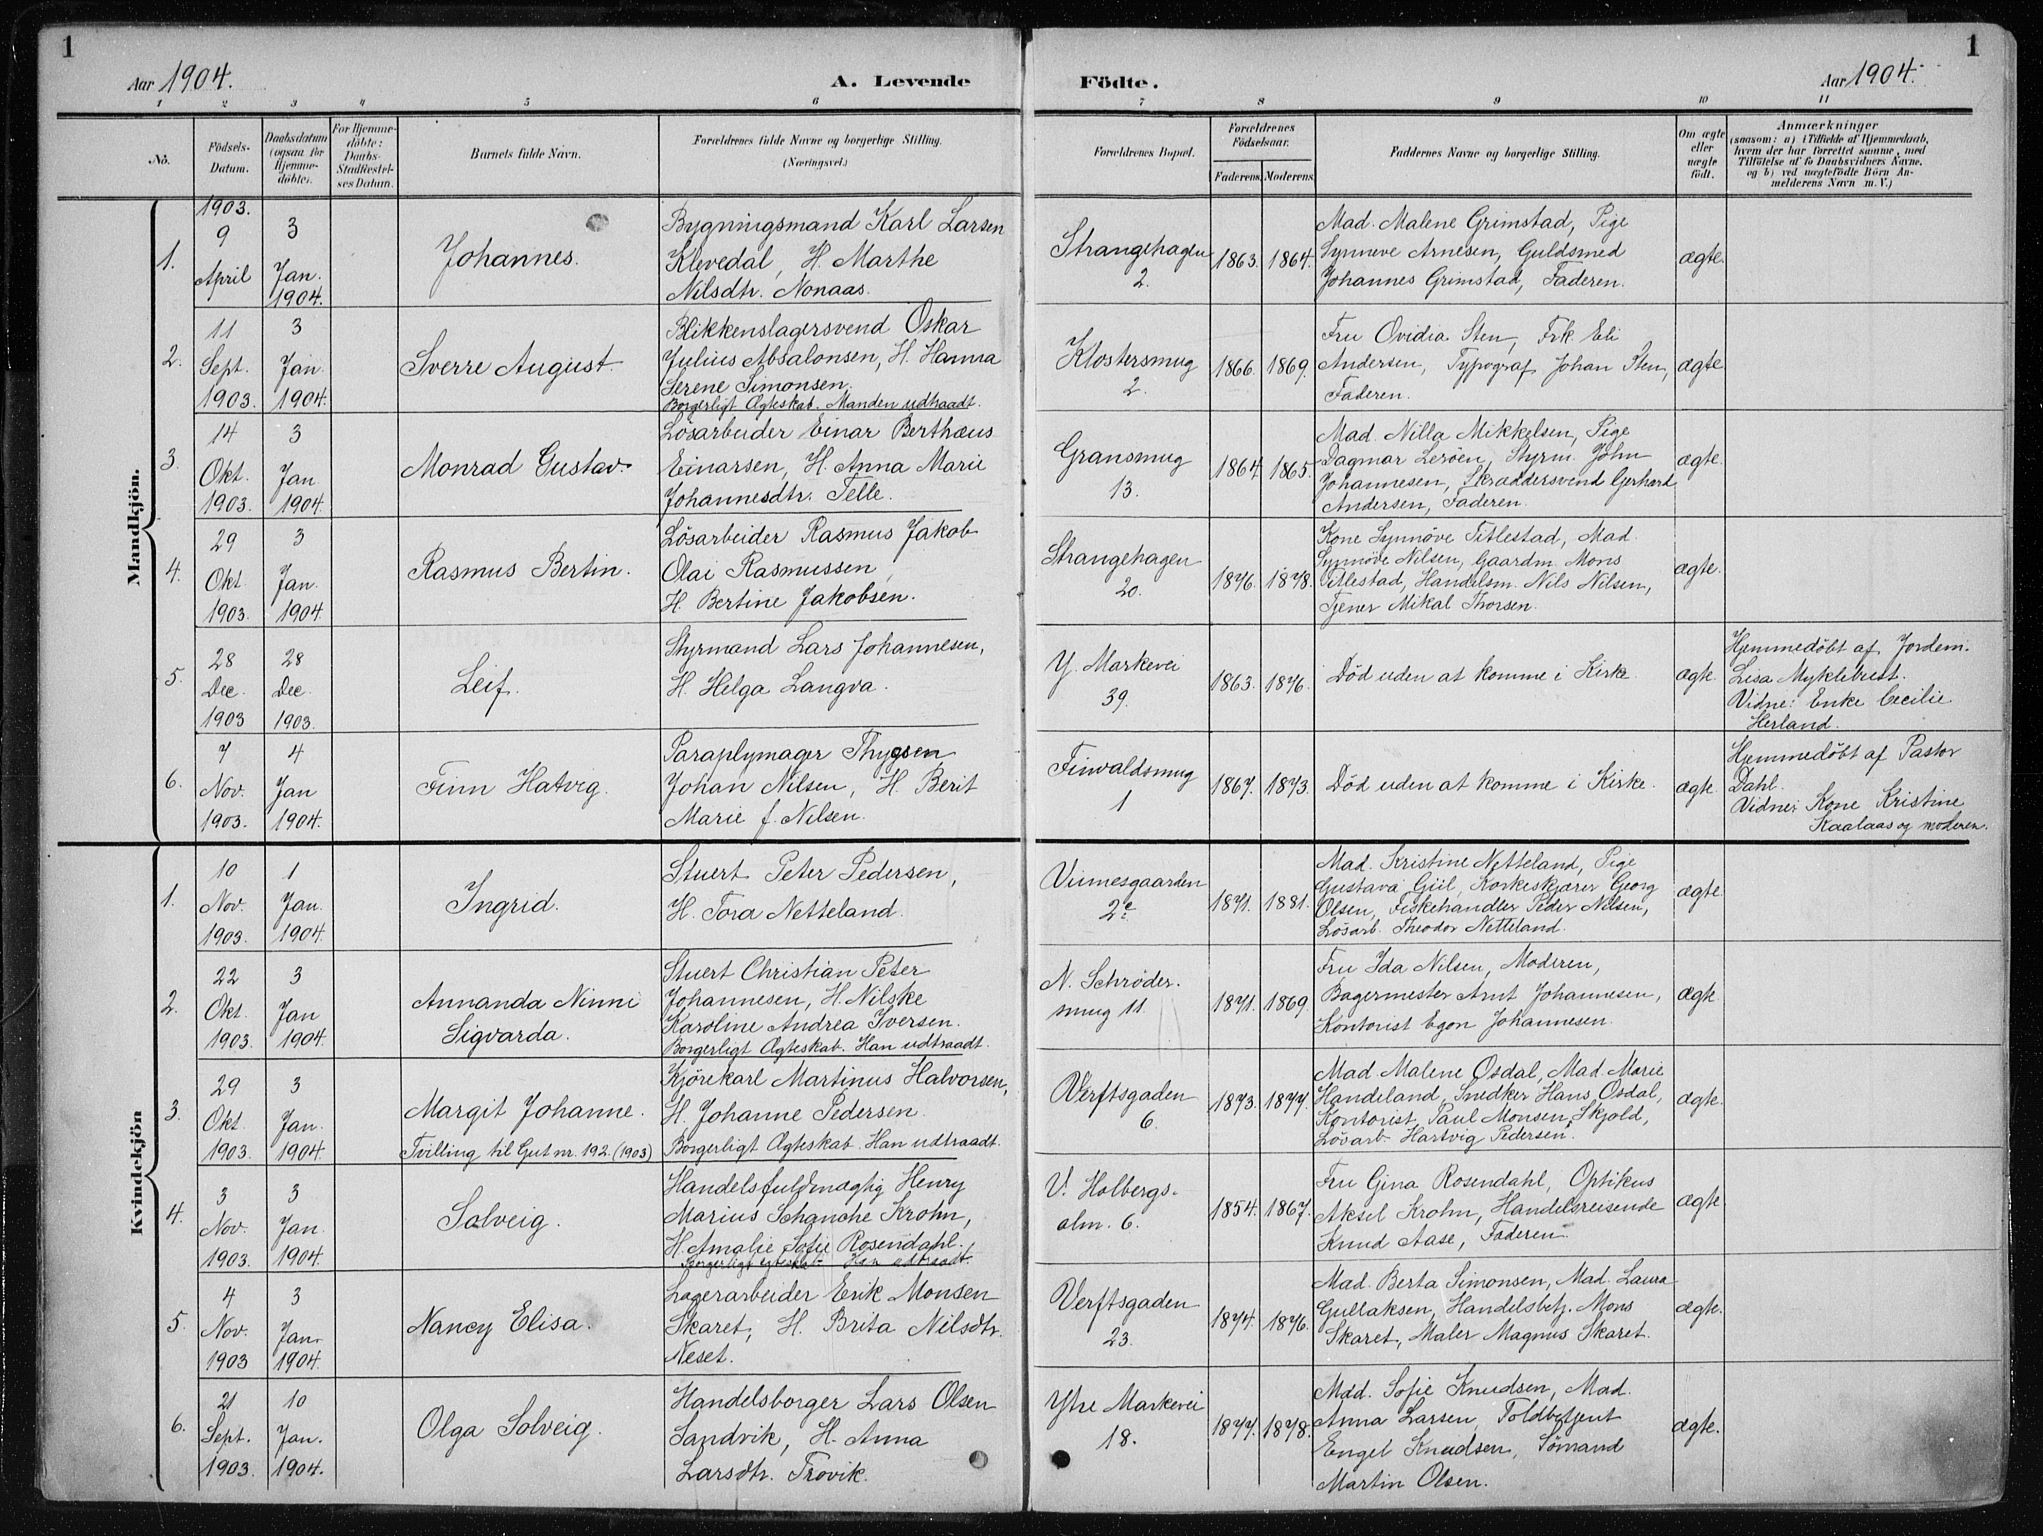 1
1
Aar 1904.
A. Levende
Födte.
Aar 1904.
1 2 3 4 5 6
7 8 9 10 11
No.
Födsels-
Datum.
Daabsdatum
(ogsaa for
Hjemme-
döbte).
For Hjemme-
döbte:
Daabs-
Stadfæstel-
ses Datum.
Barnets fulde Navn.
Forældrenes fulde Navne og borgerlige Stilling.
(Næringsvei.)
Forældrenes Bopæl.
Forældrenes
Födselsaar.
Faderens. Moderens.
Faddernes Navne og borgerlige Stilling.
Om ægte
eller
uægte
födt.
Anmærkninger
(saasom: a) i Tilfælde af Hjemmedaab,
hvem der har forrettet samme, med
Tilföielse af to Daabsvidners Navne.
og b) ved uægtefödte Börn An-
melderens Navn m. V.)
Mandkjön.
1.
1903.
9
April
3
Jan.
1904.
Johannes.
Bygningsmand Karl Larsen
Klevedal, H. Marthe
Nilsdtr. Nonaas.
Strangehagen
2.
1863. 1864.
Mad. Malene Grimstad, Pige
Synneve Arnesen, Guldsmed
Johannes Grimstad, Faderen.
ægte.
2.
11
Sept.
1903.
3
Jan.
1904.
Sverre August.
Blikkenslagersvend Oskar
Julius Absalonsen, H. Hanna
Serene Simonsen.
Borgerligt Ægteskab. Manden udtraadt.
Klostersmug
2.
1866. 1869.
Fru Ovidia Sten, Frk. Eli
Andersen, Typograf Johan Sten,
Faderen.
ægte
3.
14
Okt.
1903.
3
Jan
1904.
Monrad Gustav.
Lösarbeider Einar Berthæus
Einarsen, H. Anna Marie
Johannesdtr. Telle.
Gransmug
13.
1864. 1865.
Mad. Nilla Mikkelsen, Pige
Dagmar Leröen, Styrm. John
Johannesen, Skræddersvend Gerhard
Andersen, Faderen.
ægte.
4.
29
Okt
1903.
3
Jan.
1904.
Rasmus Bertin.
Lösarbeider Rasmus Jakob
Olai Rasmussen,
H. Bertine Jakobsen.
Strangehagen
20.
1876. 1878.
Kone Synnöve Titlestad, Mad.
Synnöve Nilsen, Gaardm. Mons
Titlestad, Handelsm. Nils Nilsen,
Tjener Mikal Thorsen.
ægte.
5.
28
Dec.
1903
28
Dec.
1903.
Leif.
Styrmand Lars Johannesen,
H. Helga Langva.
Y. Markevei
39.
1863. 1876.
Död uden at komme i Kirke.
ægte.
Hjemmedöbt af Jordem.
Lisa Myklebust.
Vidne: Enke Cecilie
Herland.
6.
7
Nov.
1903.
4
Jan
1904.
Finn Hatvig.
Paraplymager Thygsen
Johan Nilsen, H. Berit
Marie f. Nilsen.
Finvaldsmug
1
1867. 1873.
Död uden at komme i Kirke.
ægte.
Hjemmedöbt af Pastor
Dahl.
Vidner: Kone Kristine
Kaalaas og moderen.
Kvindekjön
1.
10
Nov.
1903.
1
Jan.
1904.
Ingrid.
Stuert Peter Pedersen,
H. Tora Netteland.
Vinnesgaarden
2c.
1871. 1881.
Mad. Kristine Netteland, Pige
Gustava Giil, Korkeskjærer Georg
Olsen, Fiskehandler Peder Nilsen,
Lösarb. Theodor Netteland.
ægte.
2.
22
Okt.
1903.
3
Jan
1904.
Annanda Ninni
Sigvarda.
Stuert Christian Peter
Johannesen, H. Nilske
Karoline Andrea Iversen.
Borgerligt Ægteskab. Han udtraadt.
N. Schröder.
smug 11.
1871. 1869.
Fru Ida Nilsen, Moderen,
Bagermester Arnt Johannesen,
Kontorist Egon Johannesen.
ægte.
3.
29
Okt.
1903.
3
Jan.
1904.
Margit Johanne.
Tvilling til Gut nr. 192. (1903)
Kjörekarl Martinus Halvorsen,
H. Johanne Pedersen.
Borgerligt Ægteskab. Han udtraadt.
Verftsgaden
6.
1873. 1877.
Mad. Malene Osdal, Mad. Marie
Handeland, Snedker Hans Osdal,
Kontorist Paul Monsen Skjold,
Lösarb. Hartvig Pedersen.
ægte.
4.
3
Nov.
1903.
3
Jan.
1904.
Solveig.
Handelsfuldmægtig Henry
Marius Schanche Krohn,
H. Amalie Sofie Rosendahl.
Borgerligt Ægteskab. Han udtraadt.
V. Holbergs-
alm. 6.
1854. 1867.
Fru Gina Rosendahl, Optikus
Aksel Krohn, Handelsreisende
Knud Aase, Faderen.
ægte
5.
4
Nov.
1903
3
Jan.
1904.
Nancy Elisa.
Lagerarbeider Erik Monsen
Skaret, H. Brita Nilsdtr.
Neset.
Verftsgaden
23.
1874. 1876.
Mad. Berta Simonsen, Mad. Laura
Gullaksen, Handelsbetj. Mons
Skaret, Maler Magnus Skaret.
ægte.
6.
21
Sept.
1903.
10
Jan.
1904.
Olga Solveig.
Handelsborger Lars Olsen
Sandvik, H. Anna
Larsdtr. Trovik.
Ytre Markevei
18.
1877. 1878.
Mad. Sofie Knudsen, Mad.
Anna Larsen, Toldbetjent
Engel Knudsen, Sömand
Martin Olsen.
ægte.